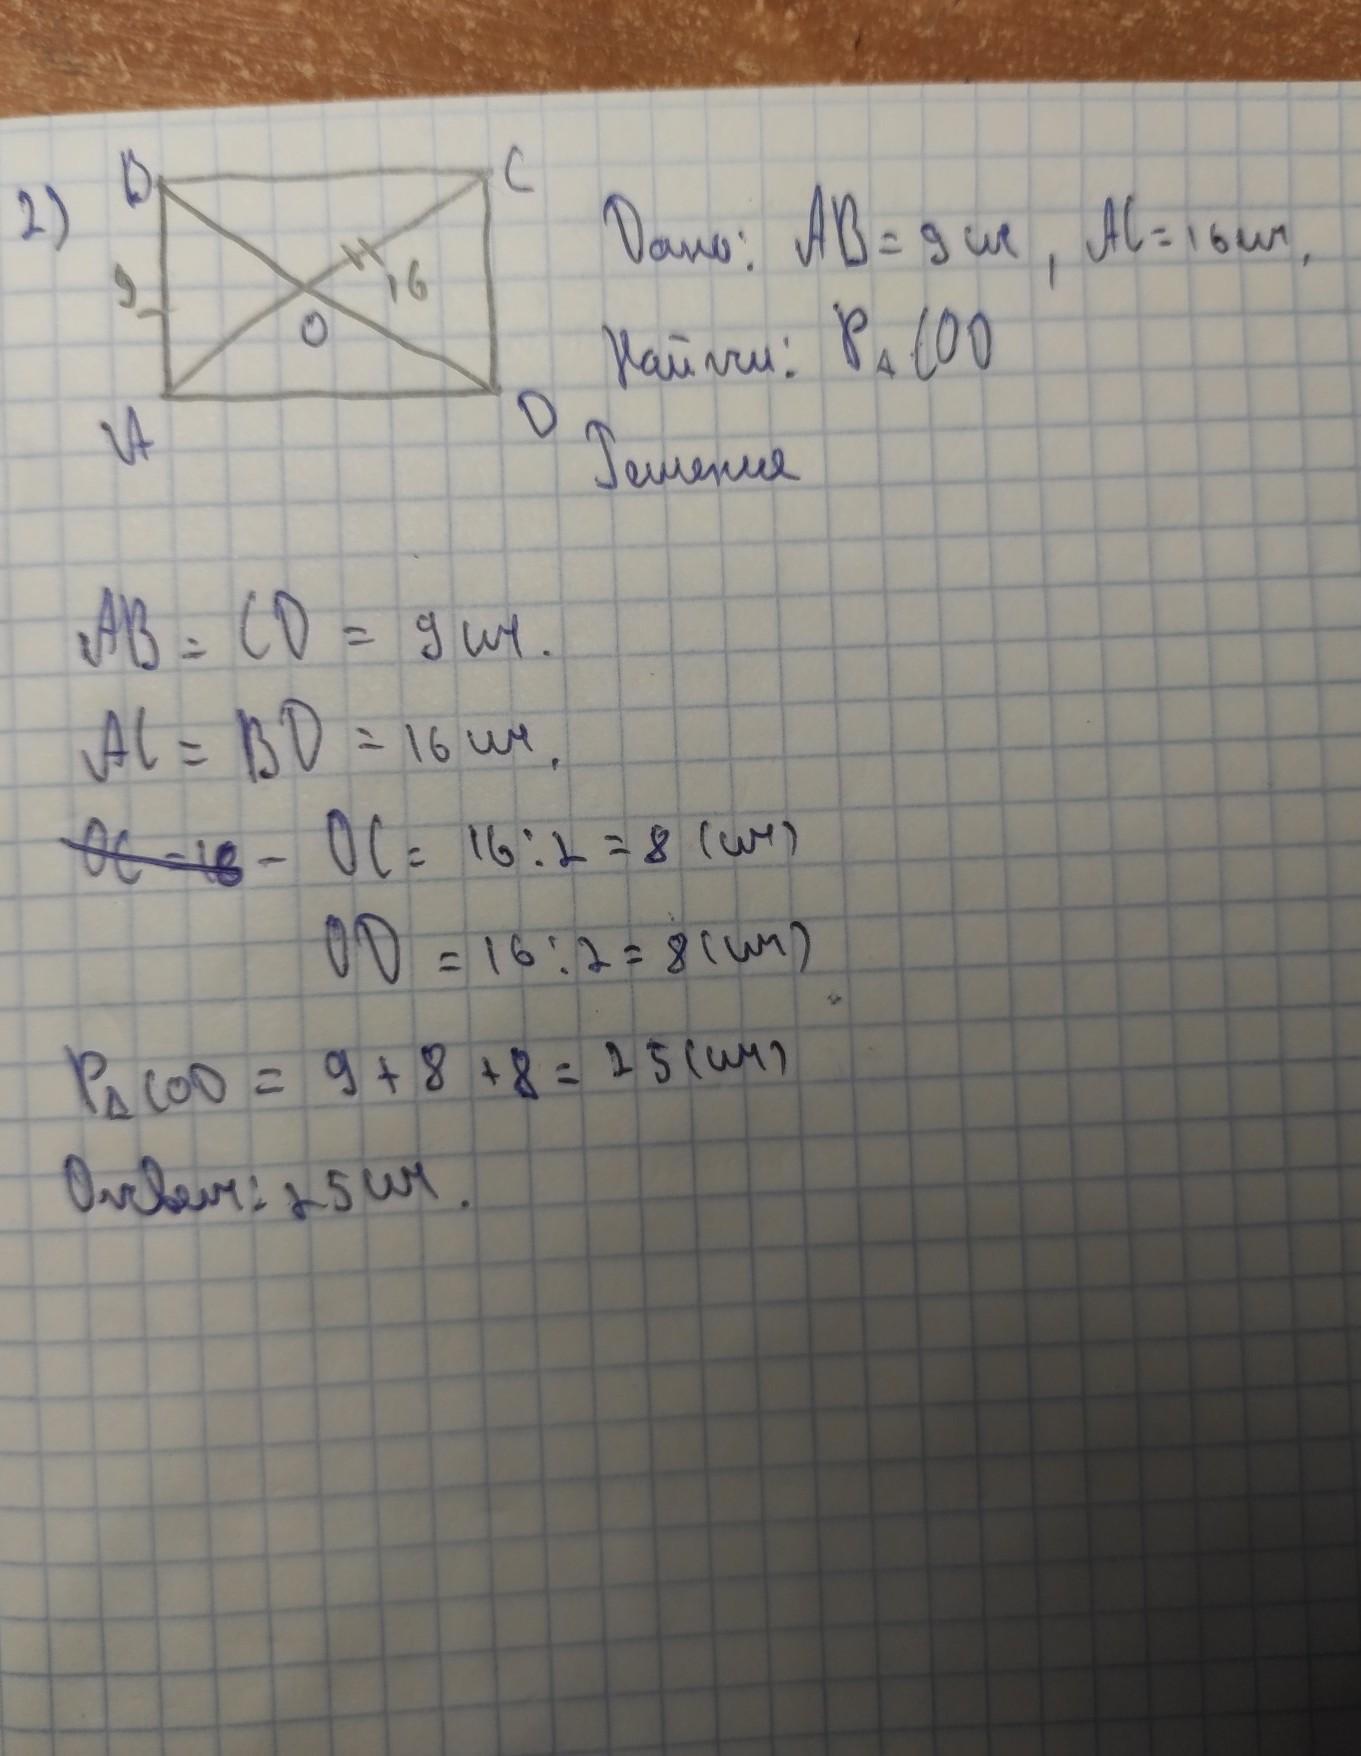 2)
B C
9 16
O
A D
Дано: AB = 9 см, AC = 16 см.
Найти: P△COD
Решения
AB = CD = 9 см.
AC = BD = 16 см.
OC - 16 - OC = 16 : 2 = 8 (см)
OD = 16 : 2 = 8 (см)
P△COD = 9 + 8 + 8 = 25 (см)
Ответ: 25 см.